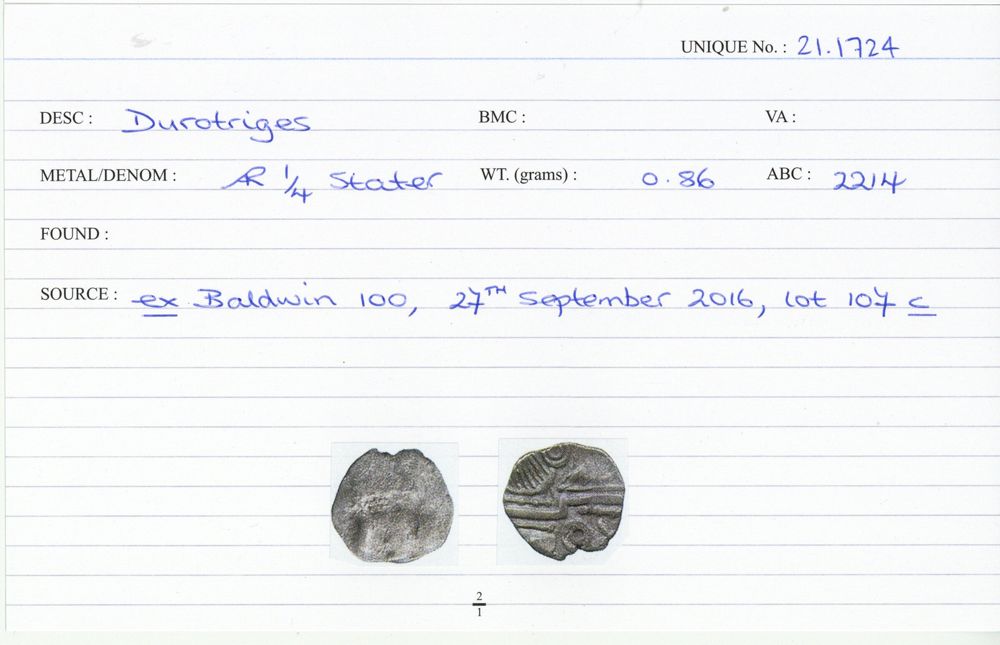 UNIQUE No. : 21.1724
DESC : Durotriges BMC : VA :
METAL/DENOM : AR 1/4 Stater WT. (grams) : 0.86 ABC : 2214
FOUND :
SOURCE : ex Baldwin 100, 27TH September 2016, lot 107 c
2
1